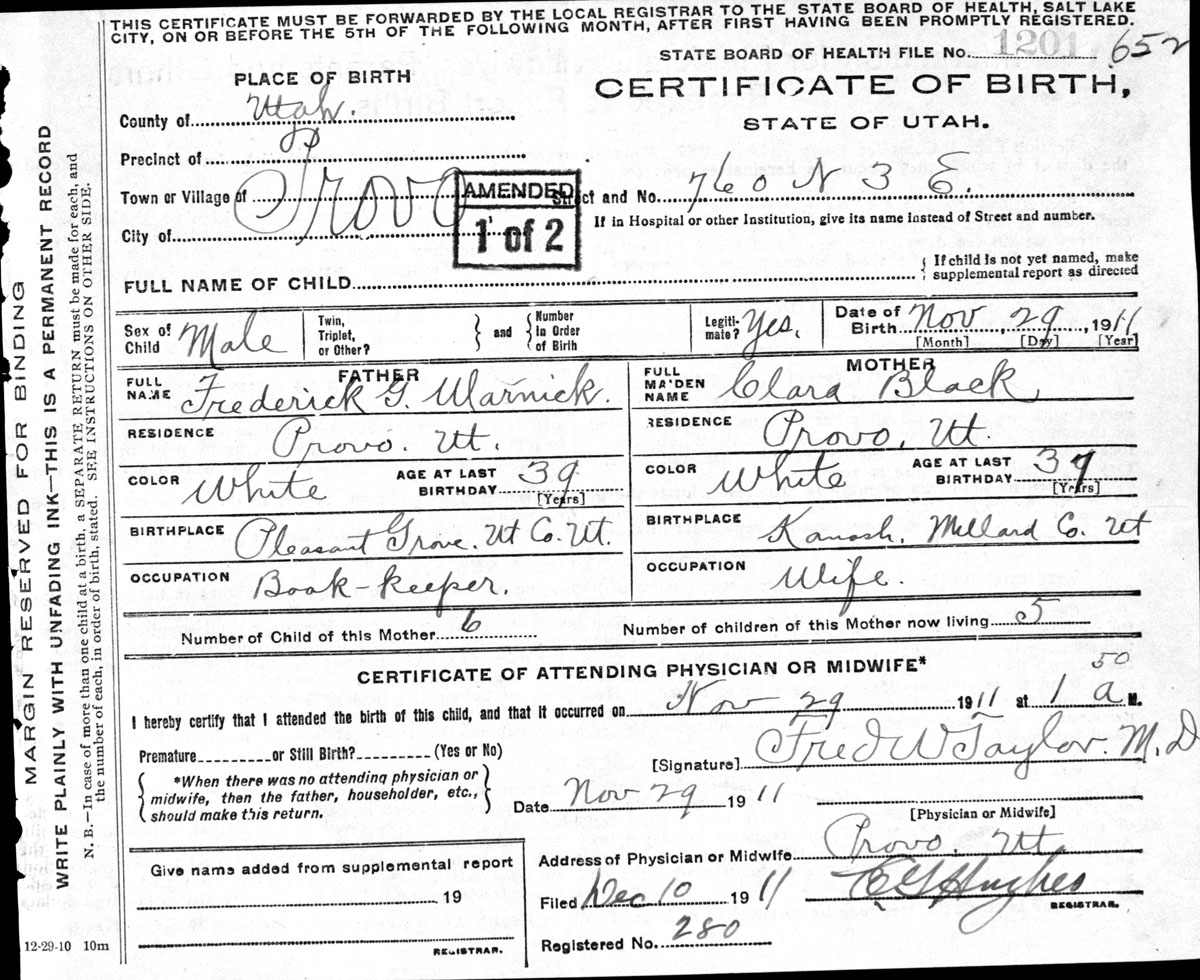 THIS CERTIFICATE MUST BE FORWARDED BY THE LOCAL REGISTRAR TO THE STATE BOARD OF HEALTH, SALT LAKE
CITY, ON OR BEFORE THE 5TH OF THE FOLLOWING MONTH, AFTER FIRST HAVING BEEN PROMPTLY REGISTERED.
STATE BOARD OF HEALTH FILE No. 1201 652
PLACE OF BIRTH
CERTIFICATE OF BIRTH,
STATE OF UTAH.
County of Utah.
Precinct of
Town or Village of Provo
City of
AMENDED
1 of 2
Street and No. 760 N 3 E.
If in Hospital or other Institution, give its name instead of Street and number.
FULL NAME OF CHILD
If child is not yet named, make
supplemental report as directed
Sex of Child Male
Twin, Triplet, or Other?
and
Number in Order of Birth
Legiti-mate? Yes.
Date of Birth Nov, 29, 1911
[Month] [Day] [Year]
FATHER
FULL NAME Frederick G. Warnick.
RESIDENCE Provo. Ut.
COLOR White
AGE AT LAST BIRTHDAY 39
[Years]
BIRTHPLACE Pleasant Grove. Ut Co. Ut.
OCCUPATION Book-keeper.
MOTHER
FULL MAIDEN NAME Clara Black
RESIDENCE Provo, Ut.
COLOR White
AGE AT LAST BIRTHDAY 37
[Years]
BIRTHPLACE Kanosh, Millard Co. Ut
OCCUPATION Wife.
Number of Child of this Mother 6
Number of children of this Mother now living 5
CERTIFICATE OF ATTENDING PHYSICIAN OR MIDWIFE*
I hereby certify that I attended the birth of this child, and that it occurred on Nov 29 1911 at 1 50 a M.
Premature or Still Birth? (Yes or No)
*When there was no attending physician or
midwife, then the father, householder, etc.,
should make this return.
[Signature] Fred W Taylor. M.D
Date Nov 29 1911
[Physician or Midwife]
Address of Physician or Midwife Provo. Ut.
Give name added from supplemental report
19
REGISTRAR.
Filed Dec 10 1911
Hughes
REGISTRAR.
Registered No. 280
12-29-10 10m
MARGIN RESERVED FOR BINDING
WRITE PLAINLY WITH UNFADING INK—THIS IS A PERMANENT RECORD
N. B.—In case of more than one child at a birth, a SEPARATE RETURN must be made for each, and
the number of each, in order of birth, stated. SEE INSTRUCTIONS ON OTHER SIDE.